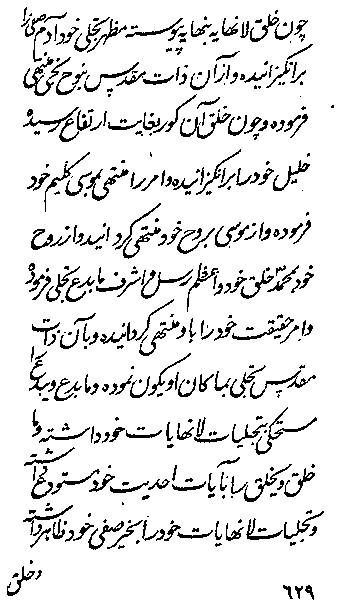 چون خلق لا نهایه بنهایه پیوسته مظهر تجلی خود آدم صفی را
برانگیزانیده و از آن ذات مقدس نوح نجی منتهی
فرموده و چون خلق آن کور بغایت ارتفاع رسیده
خلیل خود را برانگیزانیده و امر را منتهی بموسی کلیم خود
فرموده و از موسی بروح خود منتهی گردانید و از روح
خود بمحمد خلق خود و اعظم رسل و اشرف ما بدع تجلی فرمود
و امر حقیقت خود را باو منتهی گردانیده و بآن ذات
مقدس تجلی بما کان او یکون نموده و ما بدع و یبدع را
مستحکی بتجلیات لا نهایات خود داشته و ما
خلق و یخلق را بآیات احدیت خود مستودع داشته
و تجلیات لا نهایات خود را بخیر صفی خود ظاهر داشته
و خلق
۶۲۹